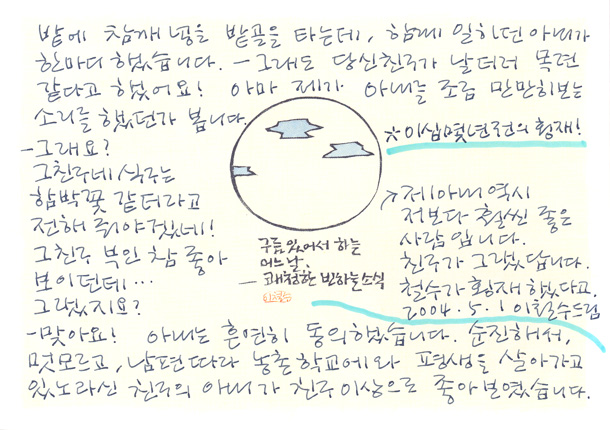 밭에 참깨 넣을 밭골을 타는데, 함께 일하던 아내가
한마디 했습니다. — 그래도 당신친구가 날더러 목련
같다고 했어요! 아마 제가 아내를 조금 만만히보는
소리를 했던가 봅니다.
※이십몇년전의 횡재!
- 그래요?
그친구네 식구는
함박꽃 같더라고
전해 줘야겠네!
그친구 부인 참 좋아
보이던데…
그렇지요?
구름있어서 하는
어느날,
— 쾌청한 빈하늘소식
↗제아내 역시
저보다 훨씬 좋은
사람입니다.
친구가 그랬답니다.
철수가 횡재 했다고.
2004. 5. 1 이철수드림
-맞아요! 아내는 흔연히 동의했습니다. 순진해서,
멋모르고, 남편따라 농촌학교에와 평생을 살아가고
있노라신 친구의 아내가 친구이상으로 좋아보였습니다.